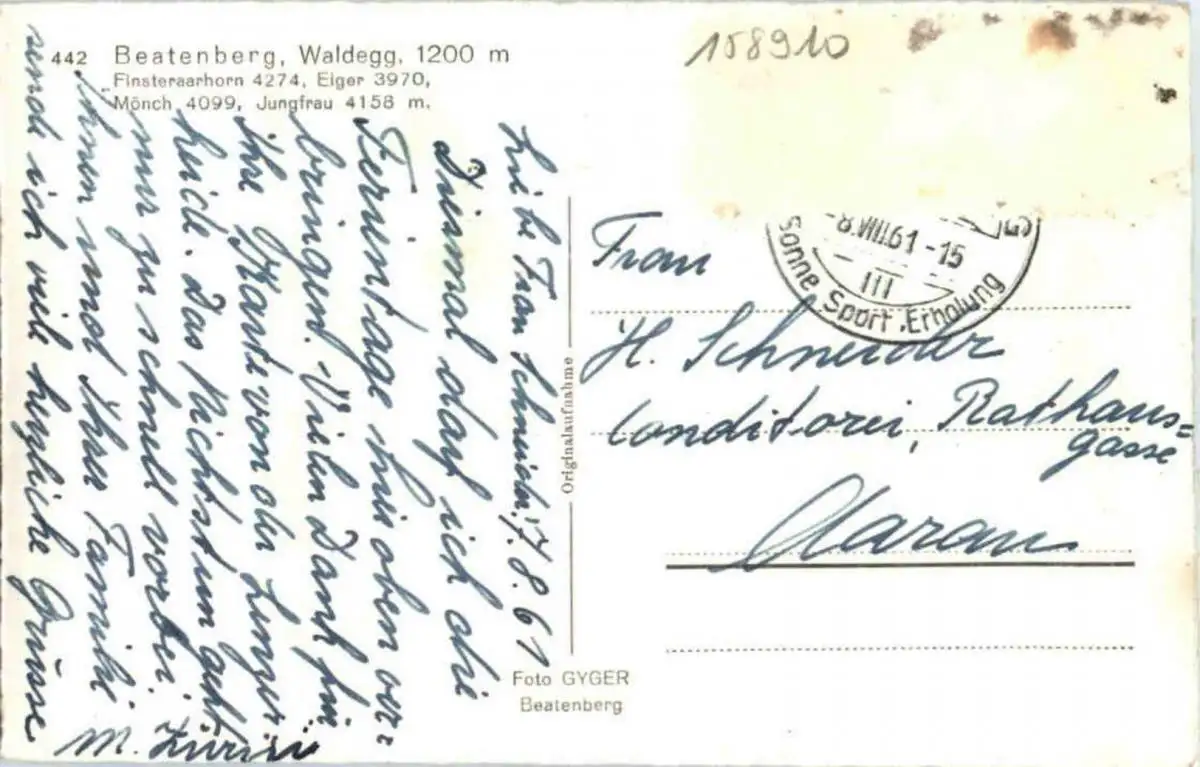 442 Beatenberg, Waldegg, 1200 m
Finsteraarhorn 4274, Eiger 3970,
Mönch 4099, Jungfrau 4158 m.
Liebe Frau Schneider, 7.8.61
Diesmal darf ich die
Ferientage hier oben ver=
bringen. Vielen Dank für
ihre Karte von der Lenzer
heide. Das Nichtstun geht
nur zu schnell vorbei.
Ihnen und Ihrer Familie
sende ich viele herzliche Grüsse
M.
Originalaufnahme
Foto GYGER
Beatenberg
158910
-8.VIII.61-15
III
Sonne.Sport.Erholung
Frau
H. Schneider
Conditorei, Rathaus=
gasse
Aarau